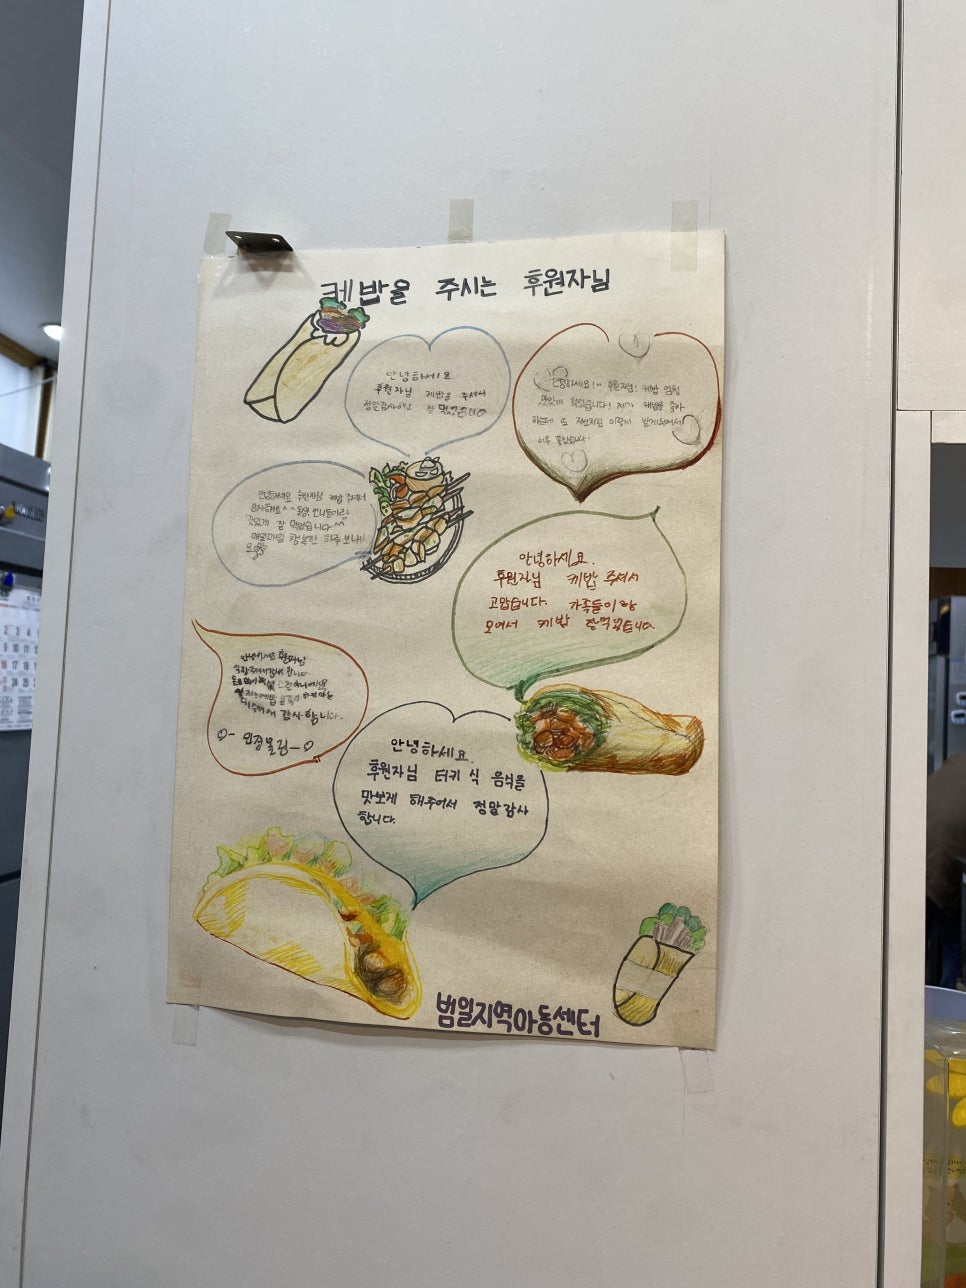 케밥을 주시는 후원자님
안녕하세요
후원자님 케밥을 주셔서
정말감사하고 잘 먹었습니다
안녕하세요! 후원자님! 케밥 엄청
맛있게 먹었습니다! 제가 케밥을 좋아
하는데 또 후원자님 이렇게
너무 좋았습니다.
안녕하세요 후원자님 케밥 주셔서
감사해요^^ 동생 언니들이랑
맛있게 잘 먹었습니다^^
매일매일 행복한 하루 보내
안녕하세요.
후원자님 케밥 주셔서
고맙습니다. 가족들이랑
모여서 케밥 잘먹었습니다.
안녕하세요 후원자님
주셔서 감사합니다.
안녕하세요.
후원자님 터키 식 음식을
맛보게 해주어서 정말감사
합니다.
범일지역아동센터